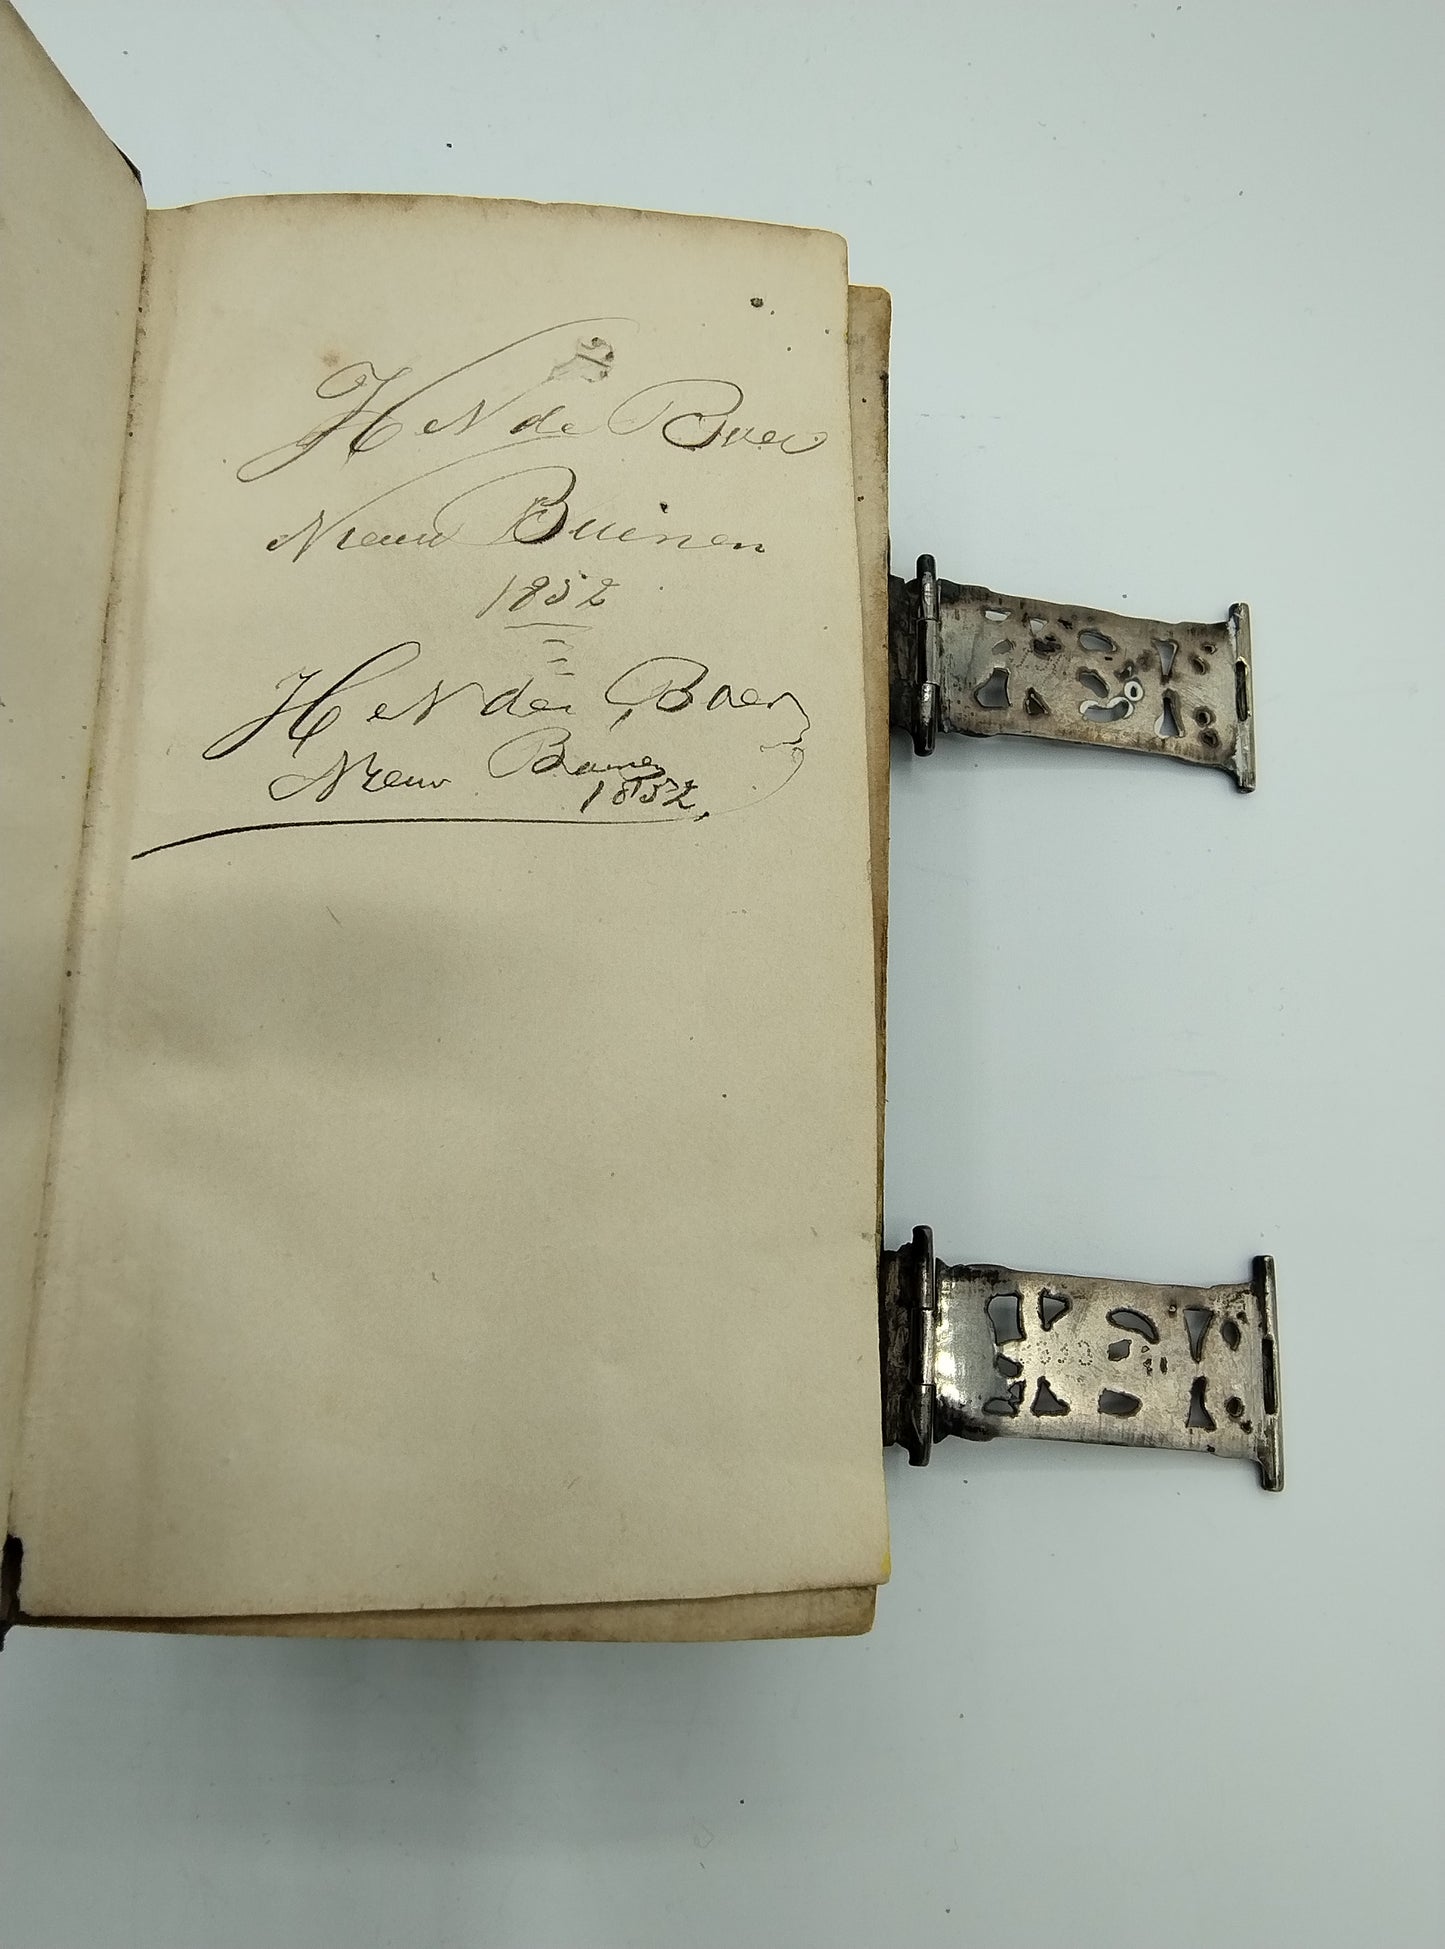 H e N de Boer
Nieuw Buinen
1852
H e N de Boer
Nieuw Buinen
1852